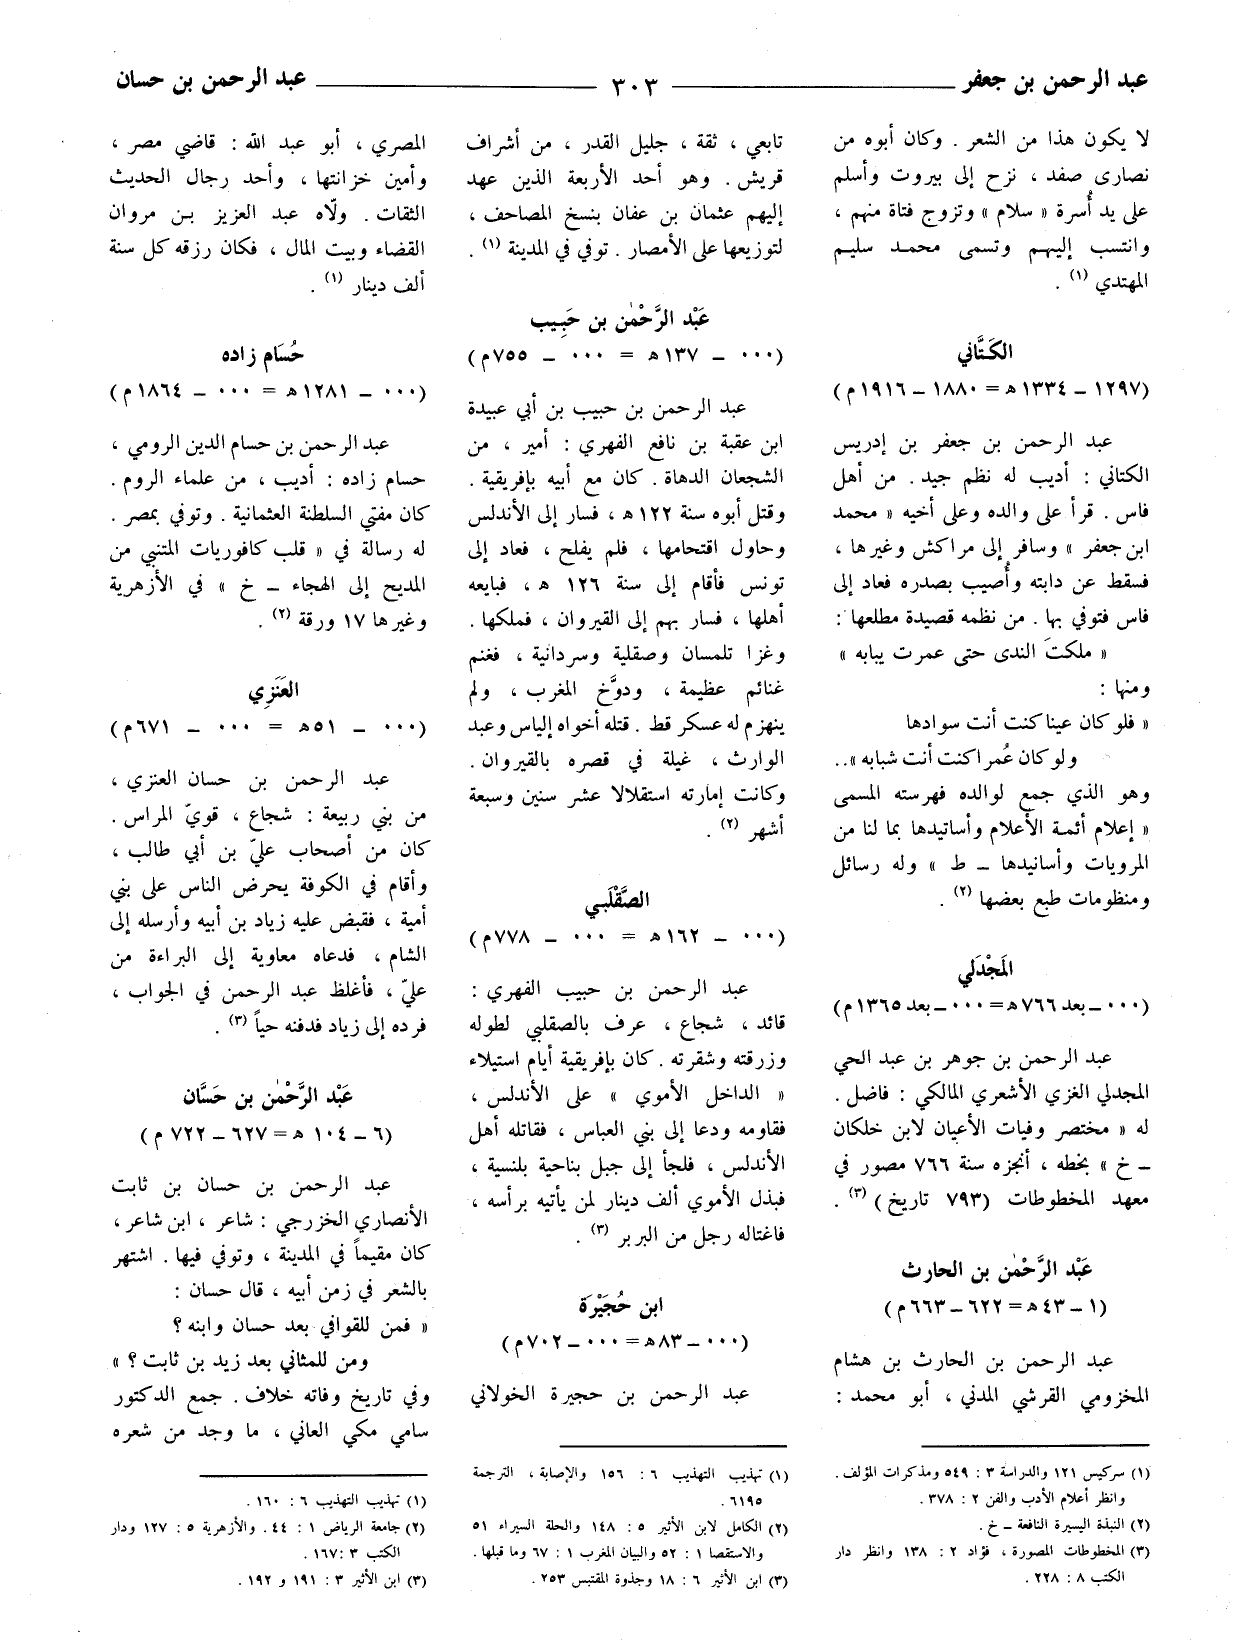 عبد الرحمن بن جعفر ٣٠٣ عبد الرحمن بن حسان
لا يكون هذا من الشعر . وكان أبوه من
نصارى صفد ، نزح إلى بيروت وأسلم
على يد أُسرة « سلام » وتزوج فتاة منهم ،
وانتسب إليهم وتسمى محمد سليم
المهتدي (١) .
الكَتَّاني
(١٢٩٧ – ١٣٣٤ ه = ١٨٨٠ – ١٩١٦ م)
عبد الرحمن بن جعفر بن إدريس
الكتاني : أديب له نظم جيد . من أهل
فاس . قرأ على والده وعلى أخيه « محمد
ابن جعفر » وسافر إلى مراكش وغيرها ،
فسقط عن دابته وأُصيب بصدره فعاد إلى
فاس فتوفي بها . من نظمه قصيدة مطلعها :
« ملكتَ الندى حتى عمرت يبابه »
ومنها :
« فلو كان عيناً كنت أنت سوادها
ولو كان عُمراً كنت أنت شبابه »..
وهو الذي جمع لوالده فهرسته المسمى
« إعلام أئمة الأعلام وأساتيدها بما لنا من
المرويات وأسانيدها – ط » وله رسائل
ومنظومات طبع بعضها (٢) .
المَجْدَلي
(٠٠٠ – بعد ٧٦٦ ه = ٠٠٠ – بعد ١٣٦٥ م)
عبد الرحمن بن جوهر بن عبد الحي
المجدلي الغزي الأشعري المالكي : فاضل .
له « مختصر وفيات الأعيان لابن خلكان
– خ » بخطه ، أنجزه سنة ٧٦٦ مصور في
معهد المخطوطات (٧٩٣ تاريخ) (٣) .
عَبْد الرَّحْمٰن بن الحارث
(١ – ٤٣ ه = ٦٢٢ – ٦٦٣ م)
عبد الرحمن بن الحارث بن هشام
المخزومي القرشي المدني ، أبو محمد :
(١) سركيس ١٢١ والدراسة ٣ : ٥٤٩ ومذكرات المؤلف .
وانظر أعلام الأدب والفن ٢ : ٣٧٨ .
(٢) النبذة اليسيرة النافعة – خ .
(٣) المخطوطات المصورة ، فؤاد ٢ : ١٣٨ وانظر دار
الكتب ٨ : ٢٢٨ .
تابعي ، ثقة ، جليل القدر ، من أشراف
قريش . وهو أحد الأربعة الذين عهد
إليهم عثمان بن عفان بنسخ المصاحف ،
لتوزيعها على الأمصار . توفي في المدينة (١) .
عَبْد الرَّحْمٰن بن حَبِيب
(٠٠٠ – ١٣٧ ه = ٠٠٠ – ٧٥٥ م)
عبد الرحمن بن حبيب بن أبي عبيدة
ابن عقبة بن نافع الفهري : أمير ، من
الشجعان الدهاة . كان مع أبيه بإفريقية .
وقتل أبوه سنة ١٢٢ ه ، فسار إلى الأندلس
وحاول اقتحامها ، فلم يفلح ، فعاد إلى
تونس فأقام إلى سنة ١٢٦ ه ، فبايعه
أهلها ، فسار بهم إلى القيروان ، فملكها .
وغزا تلمسان وصقلية وسردانية ، فغنم
غنائم عظيمة ، ودوَّخ المغرب ، ولم
ينهزم له عسكر قط . قتله أخواه إلياس وعبد
الوارث ، غيلة في قصره بالقيروان .
وكانت إمارته استقلالا عشر سنين وسبعة
أشهر (٢) .
الصَّقْلَبي
(٠٠٠ – ١٦٢ ه = ٠٠٠ – ٧٧٨ م)
عبد الرحمن بن حبيب الفهري :
قائد ، شجاع ، عرف بالصقلبي لطوله
وزرقته وشقرته . كان بإفريقية أيام استيلاء
« الداخل الأموي » على الأندلس ،
فقاومه ودعا إلى بني العباس ، فقاتله أهل
الأندلس ، فلجأ إلى جبل بناحية بلنسية ،
فبذل الأموي ألف دينار لمن يأتيه برأسه ،
فاغتاله رجل من البربر (٣) .
ابن حُجَيْرَة
(٠٠٠ – ٨٣ ه = ٠٠٠ – ٧٠٢ م)
عبد الرحمن بن حجيرة الخولاني
(١) تهذيب التهذيب ٦ : ١٥٦ والإصابة ، الترجمة
٦١٩٥ .
(٢) الكامل لابن الأثير ٥ : ١٤٨ والحلة السيراء ٥١
والاستقصا ١ : ٥٢ والبيان المغرب ١ : ٦٧ وما قبلها .
(٣) ابن الأثير ٦ : ١٨ وجذوة المقتبس ٢٥٣ .
المصري ، أبو عبد الله : قاضي مصر ،
وأمين خزانتها ، وأحد رجال الحديث
الثقات . ولّاه عبد العزيز بن مروان
القضاء وبيت المال ، فكان رزقه كل سنة
ألف دينار (١) .
حُسَام زاده
(٠٠٠ – ١٢٨١ ه = ٠٠٠ – ١٨٦٤ م)
عبد الرحمن بن حسام الدين الرومي ،
حسام زاده : أديب ، من علماء الروم .
كان مفتي السلطنة العثمانية . وتوفي بمصر .
له رسالة في « قلب كافوريات المتنبي من
المديح إلى الهجاء – خ » في الأزهرية
وغيرها ١٧ ورقة (٢) .
العَنَزِي
(٠٠٠ – ٥١ ه = ٠٠٠ – ٦٧١ م)
عبد الرحمن بن حسان العنزي ،
من بني ربيعة : شجاع ، قويّ المراس .
كان من أصحاب عليّ بن أبي طالب ،
وأقام في الكوفة يحرض الناس على بني
أمية ، فقبض عليه زياد بن أبيه وأرسله إلى
الشام ، فدعاه معاوية إلى البراءة من
عليّ ، فأغلظ عبد الرحمن في الجواب ،
فرده إلى زياد فدفنه حياً (٣) .
عَبْد الرَّحْمٰن بن حَسَّان
(٦ – ١٠٤ ه = ٦٢٧ – ٧٢٢ م)
عبد الرحمن بن حسان بن ثابت
الأنصاري الخزرجي : شاعر ، ابن شاعر ،
كان مقيماً في المدينة ، وتوفي فيها . اشتهر
بالشعر في زمن أبيه ، قال حسان :
« فمن للقوافي بعد حسان وابنه ؟
ومن للمثاني بعد زيد بن ثابت ؟ »
وفي تاريخ وفاته خلاف . جمع الدكتور
سامي مكي العاني ، ما وجد من شعره
(١) تهذيب التهذيب ٦ : ١٦٠ .
(٢) جامعة الرياض ١ : ٤٤ . والأزهرية ٥ : ١٢٧ ودار
الكتب ٣ : ١٦٧ .
(٣) ابن الأثير ٣ : ١٩١ و ١٩٢ .